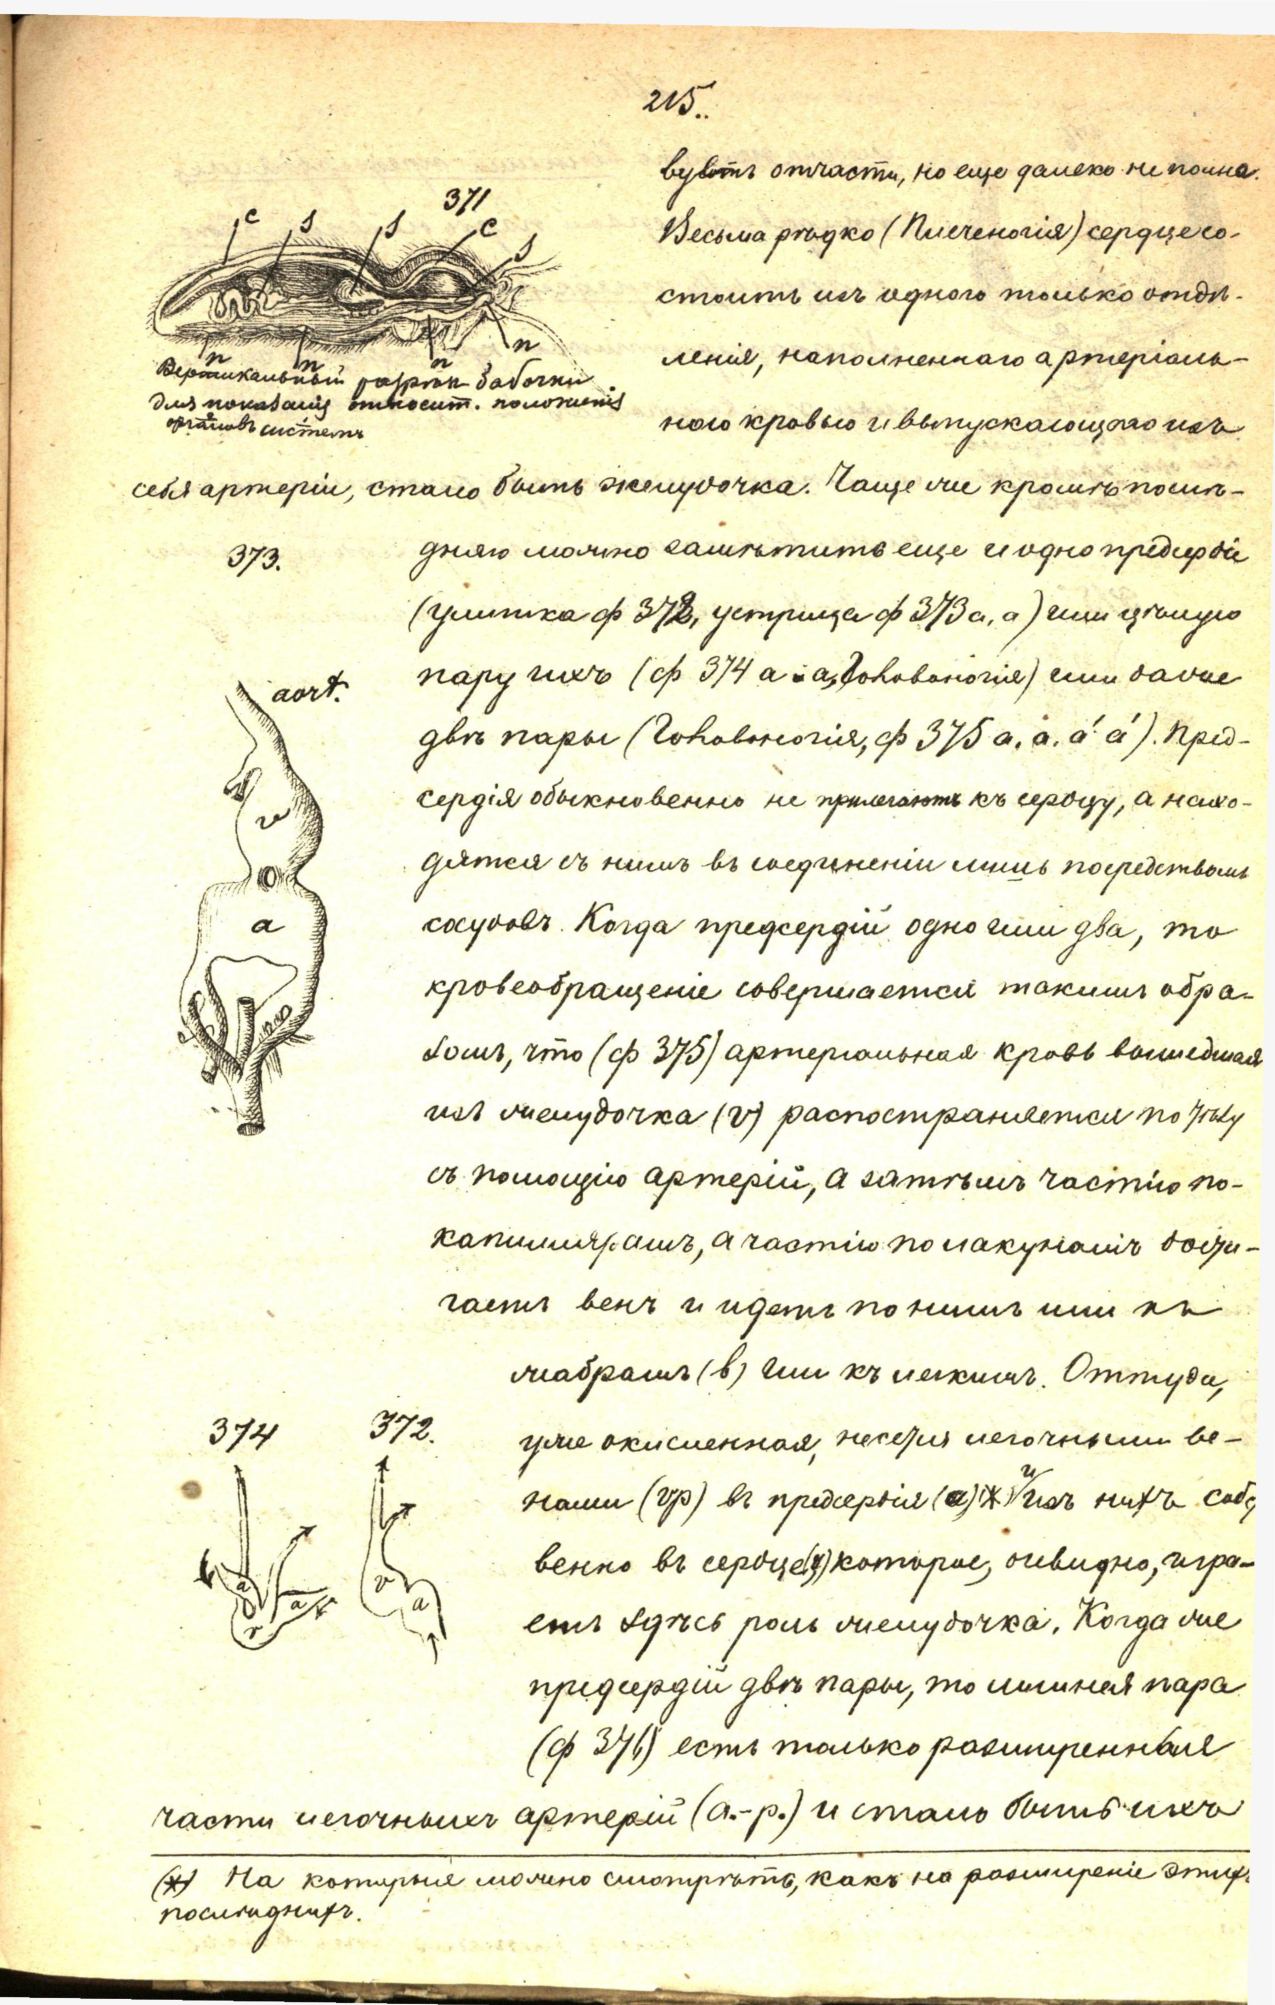 215.
371
c s s c s
n n n n
Вертикальный разрѣзъ бабочки
для показанія относит. положенія
органовъ системъ
вуетъ отчасти, но еще далеко не полна.
Весьма рѣдко (Плеченогія) сердце со-
стоитъ изъ одного только отдѣ-
ленія, наполненнаго артеріаль-
ною кровью и выпускающаго изъ
себя артеріи, стало быть желудочка. Чаще же кромѣ послѣ-
373.
дняго можно замѣтить еще и одно предсердіе
(улитка ф 372, устрица ф 373 a, a) или цѣлую
пару ихъ (ф 374 a a, Головоногія) или даже
aort.
двѣ пары (Головоногія, ф 375 a. a. á á). Пред-
сердія обыкновенно не прилегаютъ къ сердцу, а нахо-
v
дятся съ нимъ въ соединеніи лишь посредствомъ
a
сосудовъ. Когда предсердій одно или два, то
кровеобращеніе совершается такимъ обра-
зомъ, что (ф 375) артеріальная кровь вышедшая
изъ желудочка (v) распостраняется по тѣлу
съ помощію артерій, а затѣмъ частію по-
капиллярамъ, а частію по лакунамъ дости-
гаетъ венъ и идетъ по нимъ или къ
жабрамъ (в) или къ легкимъ. Оттуда,
374 372.
уже окисленная, несется легочными ве-
нами (vp) въ предсердія (a) * и изъ нихъ собс
a a v
v a
венно въ сердце (v) которое, очевидно, игра-
етъ здѣсь роль желудочка. Когда же
предсердій двѣ пары, то лишняя пара
(ф 376) есть только разширенныя
части легочныхъ артерій (a.-p.) и стало быть ихъ
(*) На которыя можно смотрѣть, какъ на разширеніе этихъ
послѣднихъ.